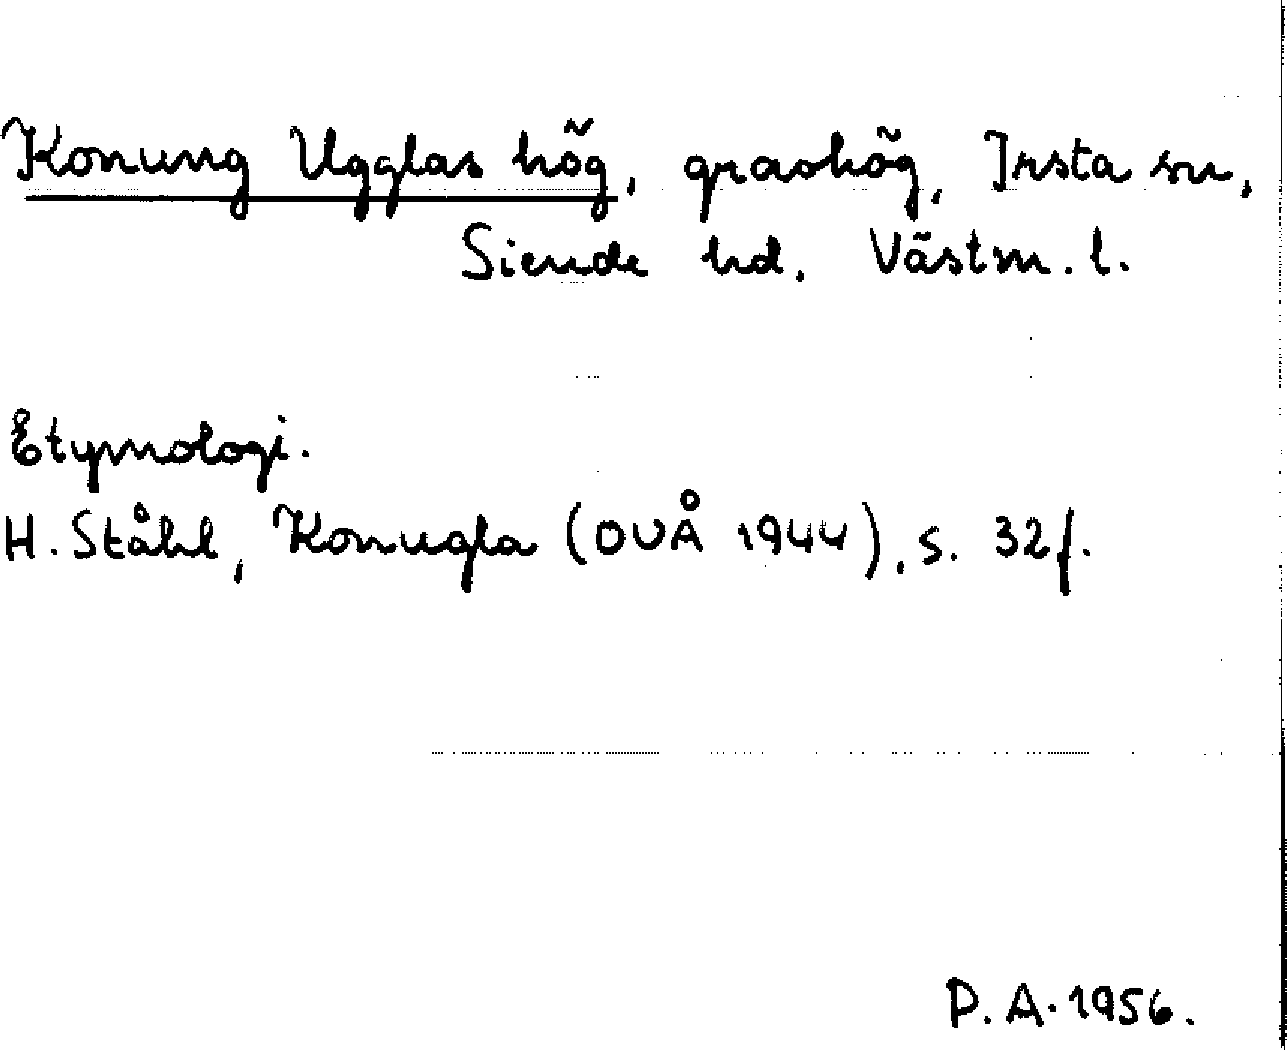 Konung Ugglas hög, gravhög, Irsta sn,
Siende hd. Västm. l.
Etymologi.
H. Ståhl, Konugla (OUÅ 1944), s. 32f.
P. A. 1956.